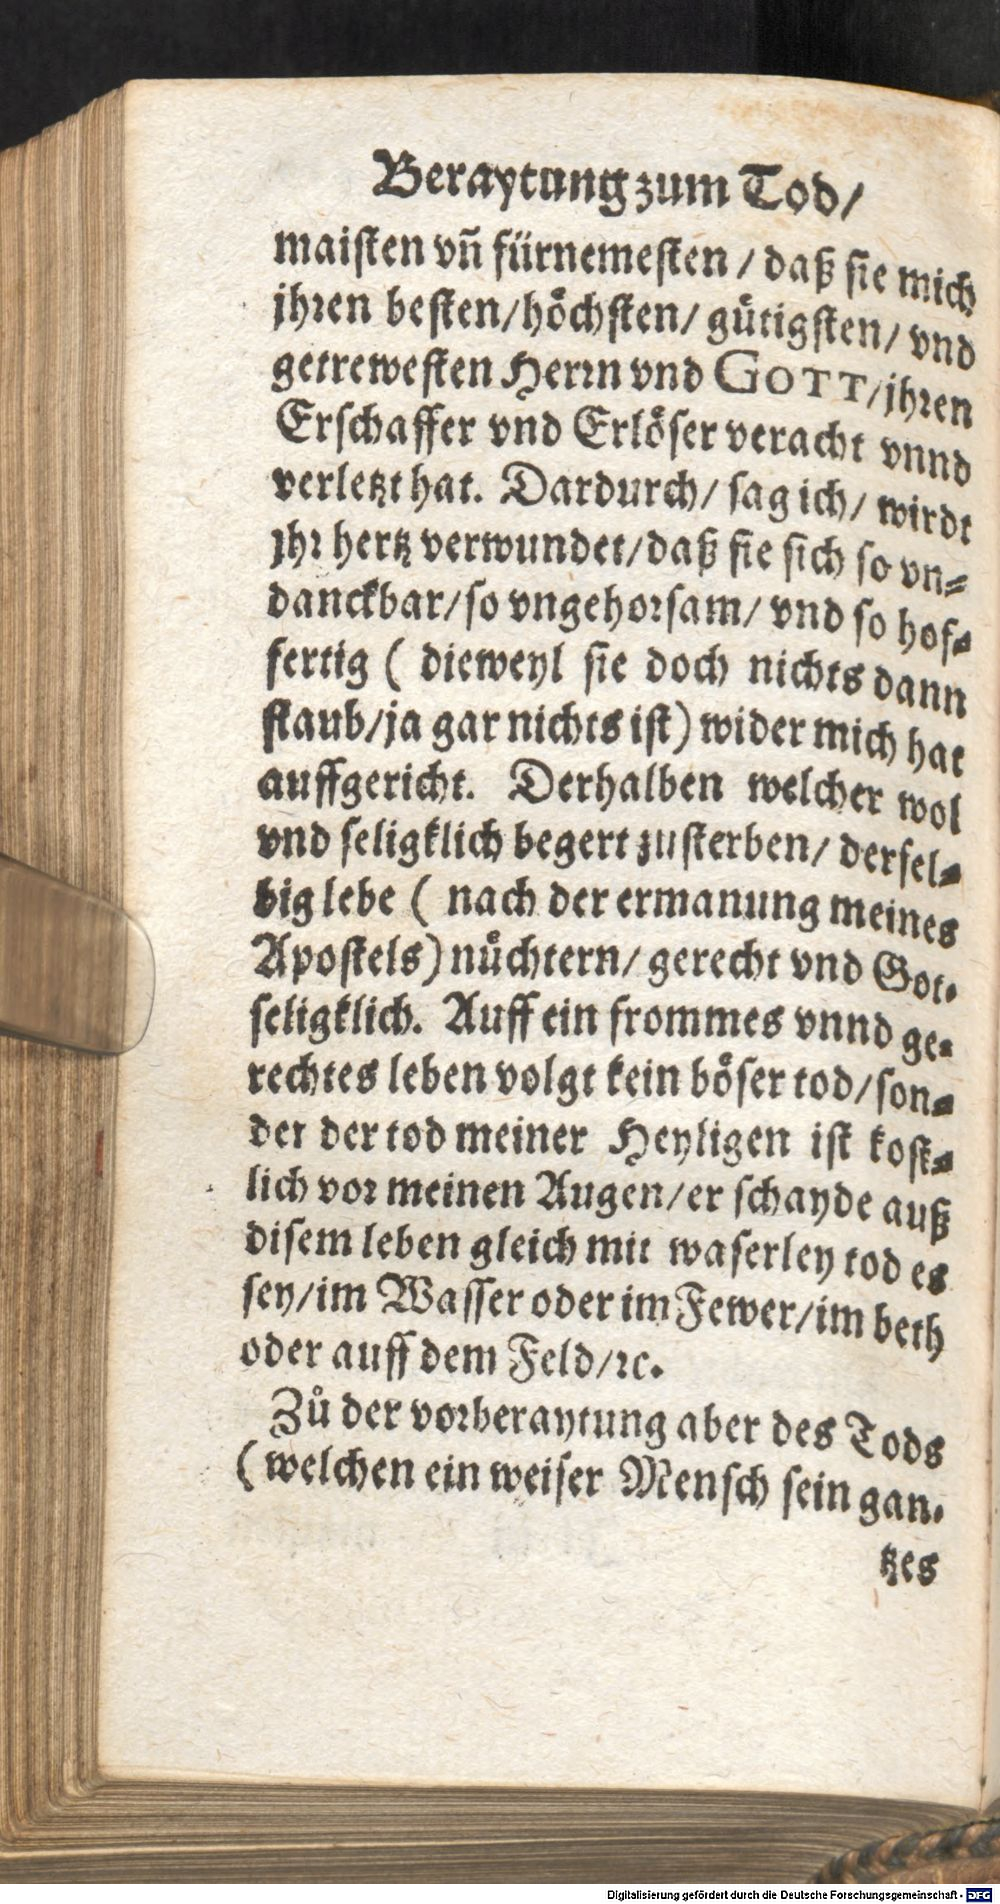 Beraytung zum Tod/
maisten vñ fürnemesten / daß sie mich
jhren besten/höchsten/ gütigsten/ vnd
getrewesten Herrn vnd GOTT/jhren
Erschaffer vnd Erlöser veracht vnnd
verletzt hat. Dardurch/ sag ich/ wirdt
jhr hertz verwundet/daß sie sich so vn-
danckbar/so vngehorsam/ vnd so hof-
fertig ( dieweyl sie doch nichts dann
staub/ja gar nichts ist) wider mich hat
auffgericht. Derhalben welcher wol
vnd seligklich begert zusterben/ dersel-
big lebe ( nach der ermanung meines
Apostels) nüchtern/ gerecht vnd Got-
seligklich. Auff ein frommes vnnd ge-
rechtes leben volgt kein böser tod/son-
der der tod meiner Heyligen ist kost-
lich vor meinen Augen/er schayde auß
disem leben gleich mit waserley tod es
sey/im Wasser oder im Fewer/im beth
oder auff dem Feld/ꝛc.
Zů der vorberaytung aber des Tods
( welchen ein weiser Mensch sein gan-
tzes
Digitalisierung gefördert durch die Deutsche Forschungsgemeinschaft - DFG